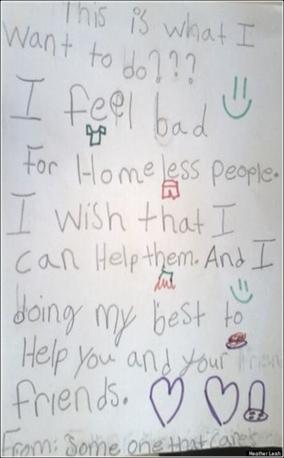 This is what I
want to do???
I feel bad
For Homeless people.
I wish that I
can Help them. And I
doing my best to
Help you and your frien
friends.
From: Some one that cares
Heather Leah